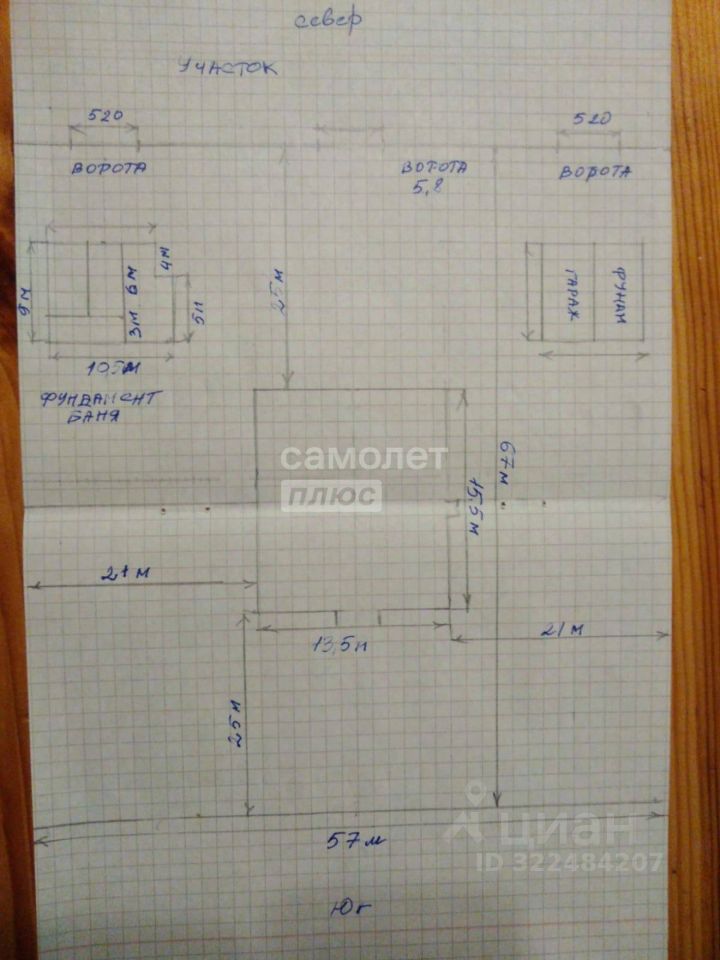 север
УЧАСТОК
520
520
ВОРОТА
ВОРОТА
5,8
ВОРОТА
9 м
3м 6м
4м
5м
25 м
ГАРАЖ
ФУНДМ
10,5м
ФУНДАМЕНТ
БАНЯ
самолет
плюс
67 м
15,5 м
21 м
13,5м
21 м
25 м
57 м
циан
ID 322484207
Юг